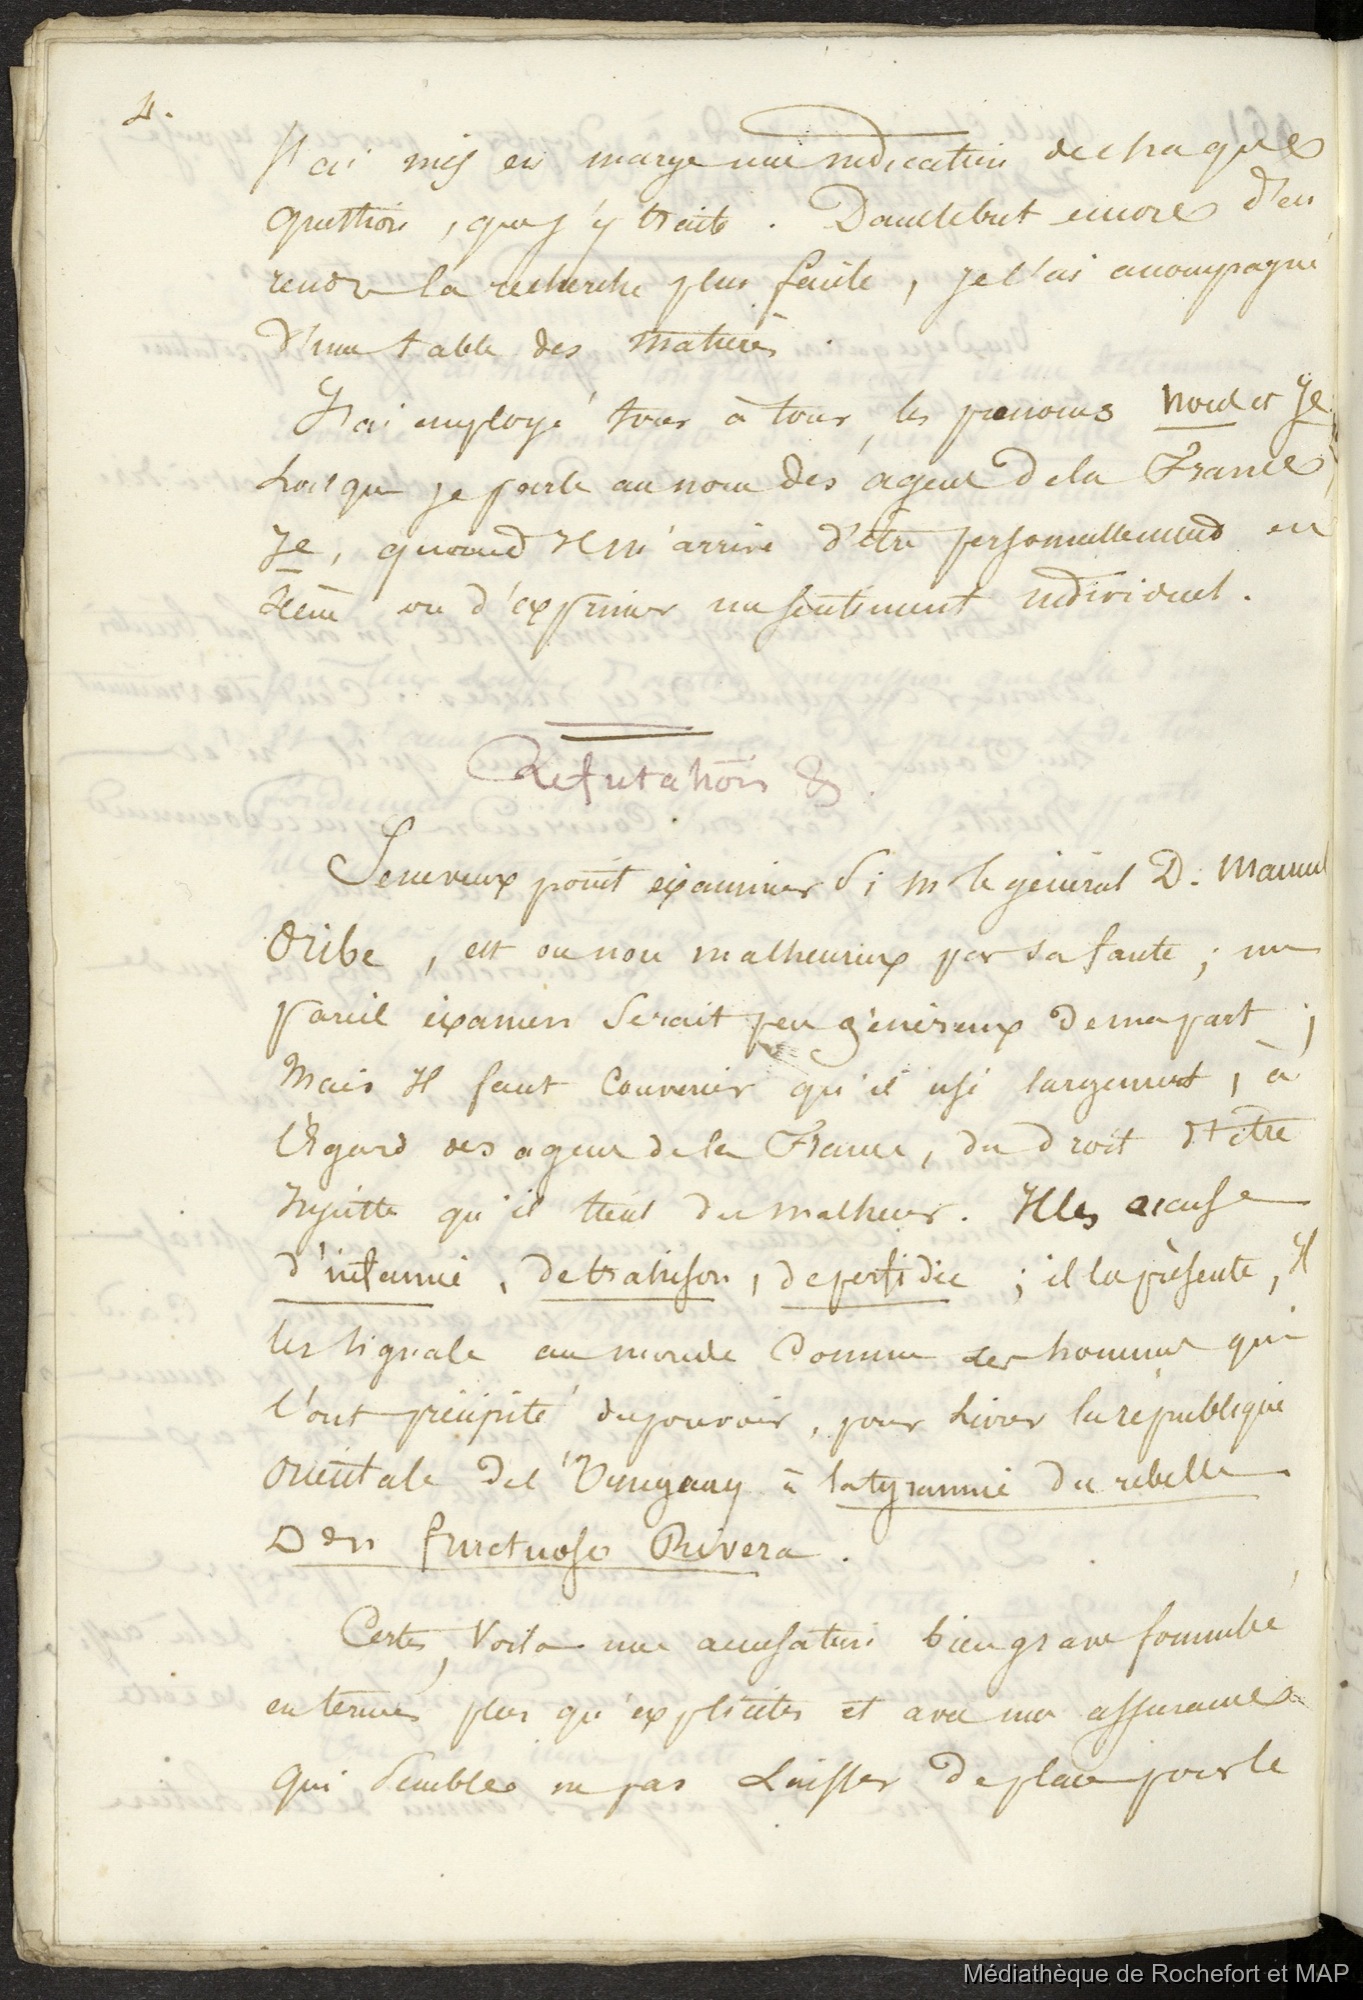 4.
J'ai mis en marge une indication de chaque
question, que j'y traite. Dans le but encore d'en
rendre la recherche plus facile, je l'ai accompagné
d'une table des matières.
J'ai employé tour à tour, les pronoms nous et Je
Lorsque je parle au nom des agens de la France,
Je, quand Il m'arrive d'être personnellement en
scène ou d'exprimer un sentiment individuel.
Réfutation &.
Je ne veux point éxaminer Si m le général D. Manuel
Oribe, est ou non malheureux par sa faute; un
pareil éxamen Serait peu généreux de ma part;
Mais Il faut Convenir qu'il use largement, à
l'égard des agens de la France, du droit d'être
Injuste qu'il tient du malheur. Il les accuse
d'infamie, de trahison, de perfidie; il les présente, Il
les signale au monde Comme des hommes qui
l'ont précipité du pouvoir, pour Livrer la république
Orientale de l'Uruguay à la tyrannie du rebelle
Don fructuoso Rivera.
Certes, Voila une accusation bien grave formulée
en termes plus qu'explicites et avec une assurance
qui Semble ne pas Laisser de place pour le
Médiathèque de Rochefort et MAP